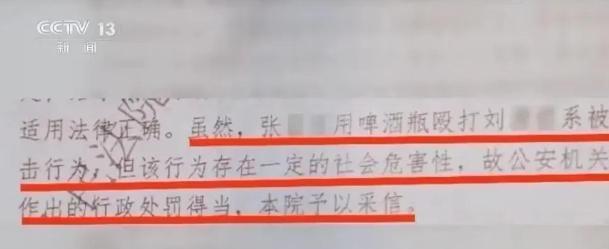 CCTV 13
新闻
适用法律正确。虽然，张 用啤酒瓶殴打刘 系被
击行为，但该行为存在一定的社会危害性，故公安机关
作出的行政处罚得当，本院予以采信。